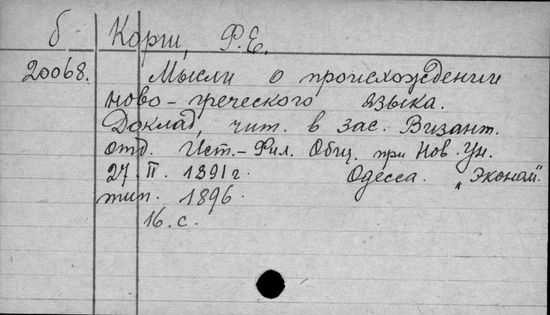 б Корш, Ф.Е.
20068. Мысли о происхождении
ново-греческого языка.
Доклад, чит. в зас. Визант.
отд. Ист.-Фил. Общ. при Нов. Ун.
27. II. 1891 г. Одесса. „Эконом."
тип. 1896.
16. с.